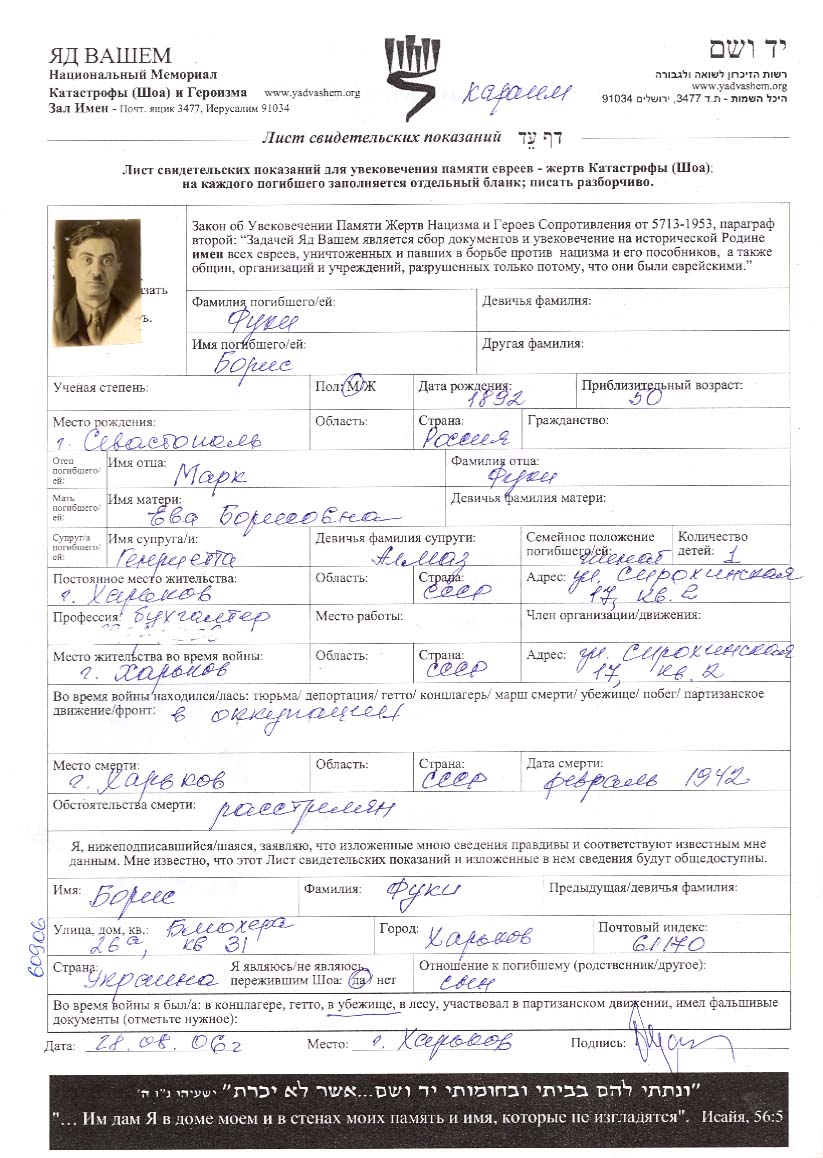 ЯД ВАШЕМ
Национальный Мемориал
Катастрофы (Шоа) и Героизма www.yadvashem.org
Зал Имен - Почт. ящик 3477, Иерусалим 91034
караим
יד ושם
רשות הזיכרון לשואה ולגבורה
www.yadvashem.org
היכל השמות - ת.ד 3477, ירושלים 91034
Лист свидетельских показаний דף עֵד
Лист свидетельских показаний для увековечения памяти евреев - жертв Катастрофы (Шоа);
на каждого погибшего заполняется отдельный бланк; писать разборчиво.
Закон об Увековечении Памяти Жертв Нацизма и Героев Сопротивления от 5713-1953, параграф
второй: “Задачей Яд Вашем является сбор документов и увековечение на исторической Родине
имен всех евреев, уничтоженных и павших в борьбе против нацизма и его пособников, а также
общин, организаций и учреждений, разрушенных только потому, что они были еврейскими.”
зать
ь.
Фамилия погибшего/ей: Девичья фамилия:
Фуки
Имя погибшего/ей: Другая фамилия:
Борис
Ученая степень: Пол: М/Ж Дата рождения: 1892 Приблизительный возраст: 50
Место рождения: Область: Страна: Гражданство:
г. Севастополь Россия
Отец погибшего/ей: Имя отца: Марк Фамилия отца: Фуки
Мать погибшего/ей: Имя матери: Ева Борисовна Девичья фамилия матери:
Супруг/а погибшего/ей: Имя супруга/и: Генриетта Девичья фамилия супруги: Алмаз Семейное положение погибшего/ей: женат Количество детей: 1
Постоянное место жительства: Область: Страна: Адрес: ул. Сирохинская
г. Харьков СССР 17, кв. 2
Профессия: бухгалтер Место работы: Член организации/движения:
Место жительства во время войны: Область: Страна: Адрес: ул. Сирохинская
г. Харьков СССР 17, кв. 2
Во время войны находился/лась: тюрьма/ депортация/ гетто/ концлагерь/ марш смерти/ убежище/ побег/ партизанское
движение/фронт: в оккупации
Место смерти: Область: Страна: Дата смерти:
г. Харьков СССР февраль 1942
Обстоятельства смерти: расстрелян
Я, нижеподписавшийся/шаяся, заявляю, что изложенные мною сведения правдивы и соответствуют известным мне
данным. Мне известно, что этот Лист свидетельских показаний и изложенные в нем сведения будут общедоступны.
Имя: Борис Фамилия: Фуки Предыдущая/девичья фамилия:
Улица, дом, кв.: Блюхера Город: Почтовый индекс:
26а, кв 31 Харьков 61170
60906
Страна: Украина Я являюсь/не являюсь пережившим Шоа: да/ нет Отношение к погибшему (родственник/другое): сын
Во время войны я был/а: в концлагере, гетто, в убежище, в лесу, участвовал в партизанском движении, имел фальшивые
документы (отметьте нужное):
Дата: 28.08.06г Место: г. Харьков Подпись:
"ונתתי להם בביתי ובחומותי יד ושם...אשר לא יכרת" ישעיהו נ"ו ה'
"... Им дам Я в доме моем и в стенах моих память и имя, которые не изгладятся". Исайя, 56:5